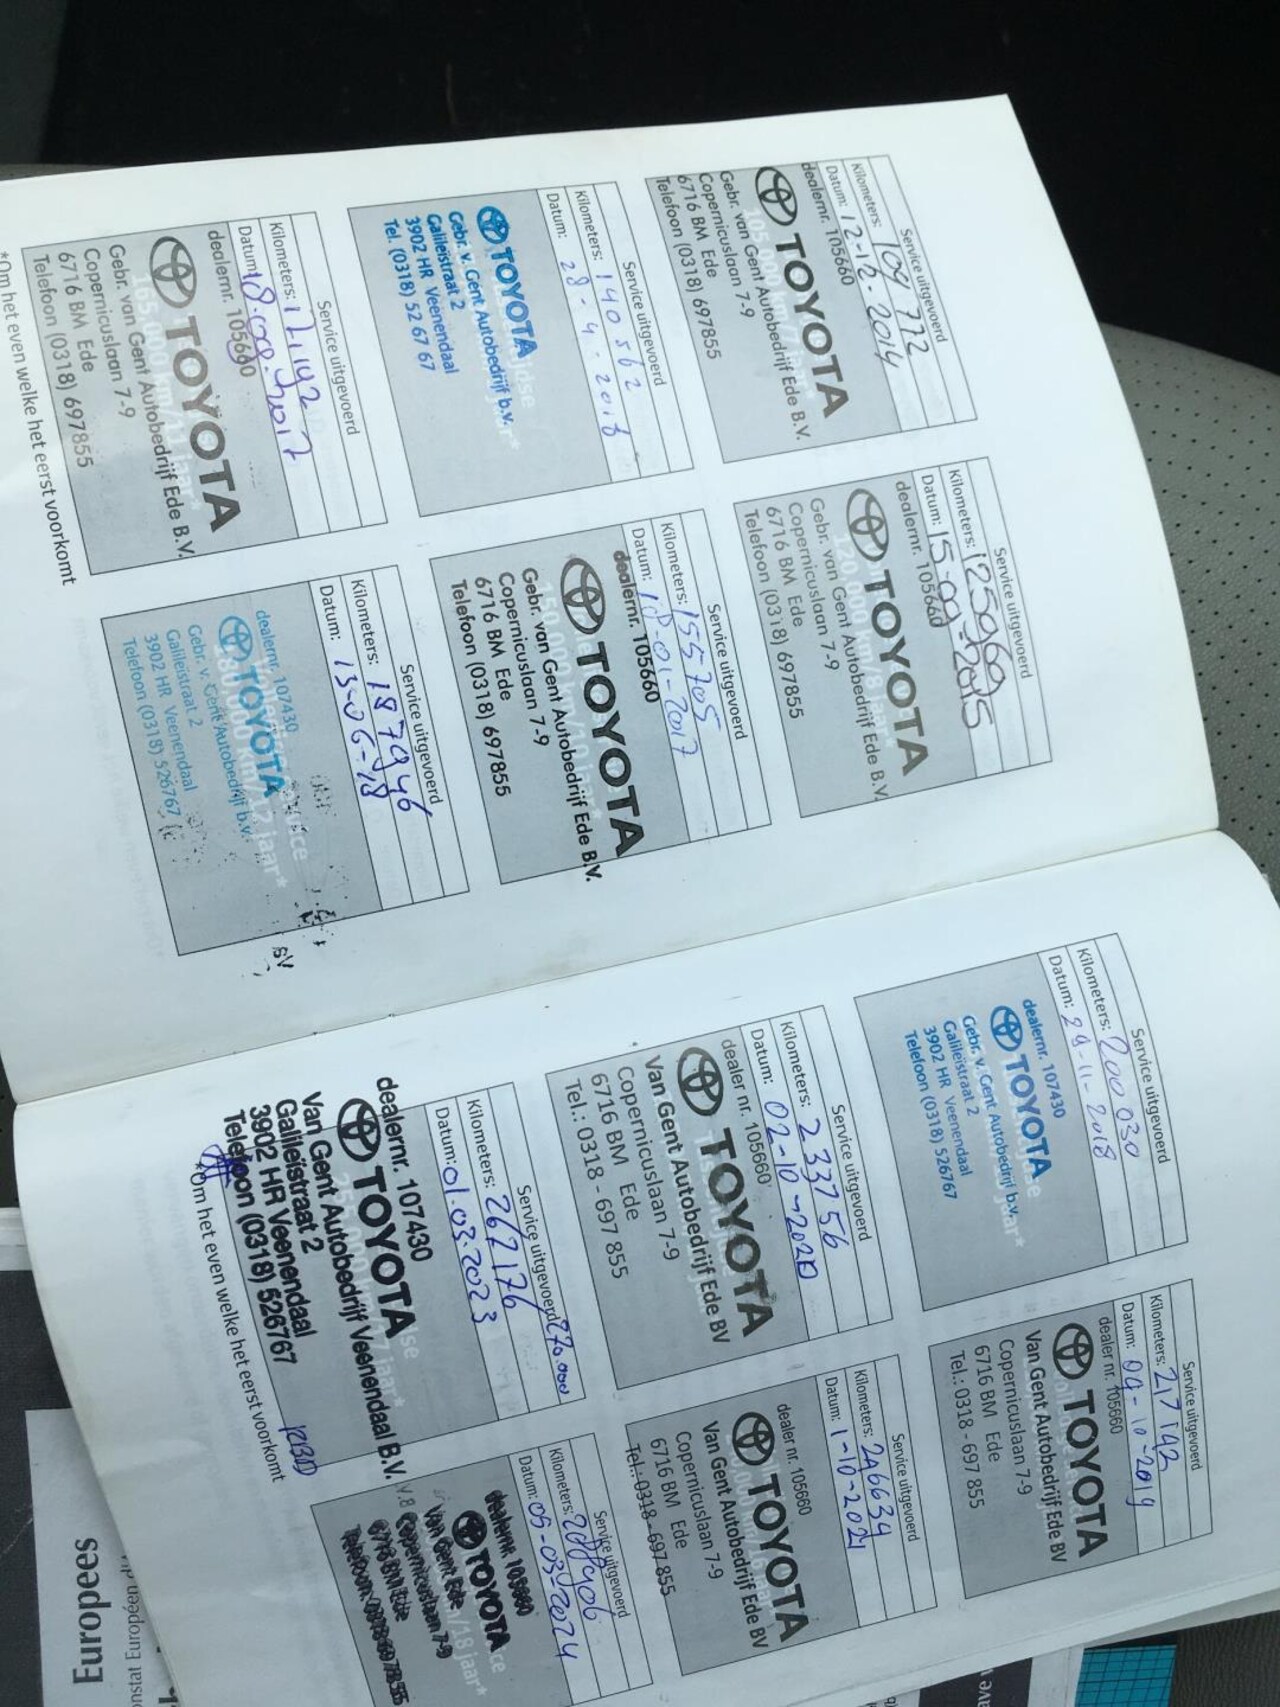 Service uitgevoerd
Kilometers: 109 722
Datum: 12-12-2014
dealernr. 105660
TOYOTA
Gebr. van Gent Autobedrijf Ede B.V.
Copernicuslaan 7-9
6716 BM Ede
Telefoon (0318) 697855
Service uitgevoerd
Kilometers: 125969
Datum: 15-09-2015
dealernr. 105660
TOYOTA
120.000 km/8 jaar*
Gebr. van Gent Autobedrijf Ede B.V.
Copernicuslaan 7-9
6716 BM Ede
Telefoon (0318) 697855
Service uitgevoerd
Kilometers: 140562
Datum: 28-4-2016
TOYOTA
Gebr. v. Gent Autobedrijf b.v.
Galileistraat 2
3902 HR Veenendaal
Tel. (0318) 52 67 67
Service uitgevoerd
Kilometers: 155705
Datum: 18-01-2017
dealernr. 105660
TOYOTA
150.000 km/10 jaar*
Gebr. van Gent Autobedrijf Ede B.V.
Copernicuslaan 7-9
6716 BM Ede
Telefoon (0318) 697855
Service uitgevoerd
Kilometers:
Datum: 18-09-2017
dealernr. 105660
TOYOTA
165.000 km/11 jaar*
Gebr. van Gent Autobedrijf Ede B.V.
Copernicuslaan 7-9
6716 BM Ede
Telefoon (0318) 697855
Service uitgevoerd
Kilometers: 187946
Datum: 13-06-18
dealernr. 107430
TOYOTA
Gebr. v. Gent Autobedrijf b.v.
Galileistraat 2
3902 HR Veenendaal
Telefoon (0318) 526767
*Om het even welke het eerst voorkomt
Service uitgevoerd
Kilometers: 200030
Datum: 29-11-2018
dealernr. 107430
TOYOTA
Gebr. v. Gent Autobedrijf b.v.
Galileistraat 2
3902 HR Veenendaal
Telefoon (0318) 526767
Service uitgevoerd
Kilometers: 217142
Datum: 09-10-2019
dealer nr. 105660
TOYOTA
Van Gent Autobedrijf Ede BV
Copernicuslaan 7-9
6716 BM Ede
Tel.: 0318 - 697 855
Service uitgevoerd
Kilometers: 233756
Datum: 02-10-2020
dealer nr. 105660
TOYOTA
Van Gent Autobedrijf Ede BV
Copernicuslaan 7-9
6716 BM Ede
Tel.: 0318 - 697 855
Service uitgevoerd
Kilometers: 246634
Datum: 1-10-2021
dealer nr. 105660
TOYOTA
Van Gent Autobedrijf Ede BV
Copernicuslaan 7-9
6716 BM Ede
Tel.: 0318 - 697 855
Service uitgevoerd 270.000
Kilometers: 267176
Datum: 01-03-2023
dealernr. 107430
TOYOTA
Van Gent Autobedrijf Veenendaal B.V.
Galileistraat 2
3902 HR Veenendaal
Telefoon (0318) 526767
Service uitgevoerd
Kilometers:
Datum: 05-03-2024
dealernr. 105660
TOYOTA
Van Gent Ede
Copernicuslaan 7-9
6716 BM Ede
*Om het even welke het eerst voorkomt
Europees
Constat Européen